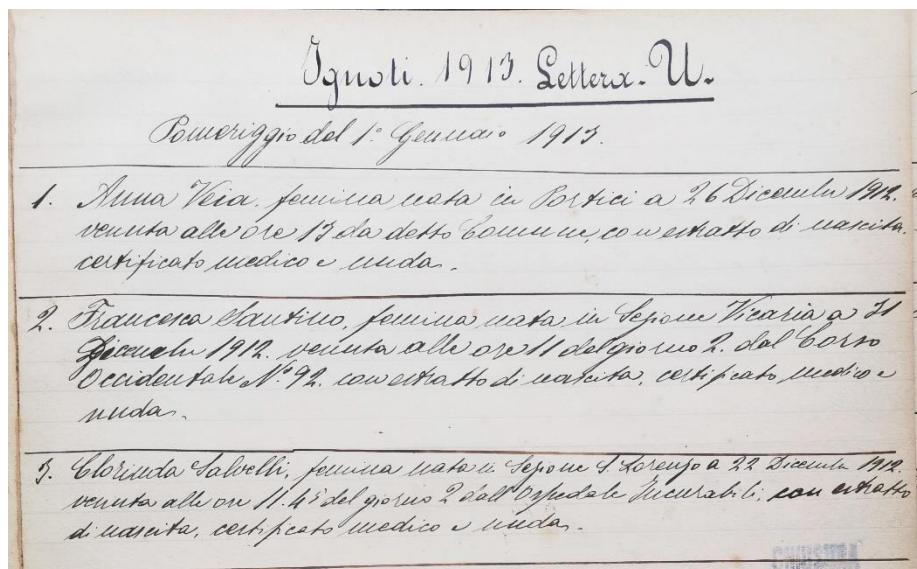 Ignoti. 1913. Lettera. U.
Pomeriggio del 1° Gennaio 1913.
1. Anna Veia. femina nata in Portici a 26 Dicembre 1912.
venuta alle ore 13 da detto Comune, con estratto di nascita.
certificato medico e nuda.
2. Francesca Santino, femina nata in Sezione Vicaria a 31
Dicembre 1912. venuta alle ore 11 del giorno 2. dal Corso
Occidentale N° 92. con estratto di nascita, certificato medico e
nuda.
3. Clorinda Salvelli, femina nata in Sezione S. Lorenzo a 22 Dicembre 1912.
venuta alle ore 11.45 del giorno 2 dall'Ospedale Incurabili, con estratto
di nascita, certificato medico e nuda.